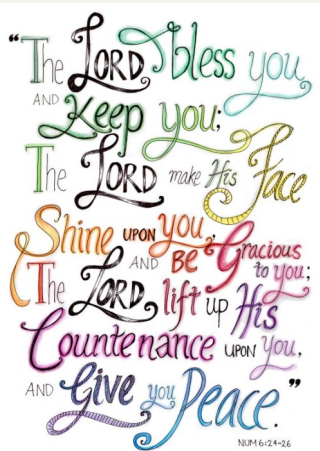 “The LORD bless you
AND Keep you;
The LORD make His Face
Shine UPON you,
AND BE Gracious to you;
The LORD lift up His
Countenance UPON you,
AND Give you Peace.”
NUM 6:24-26